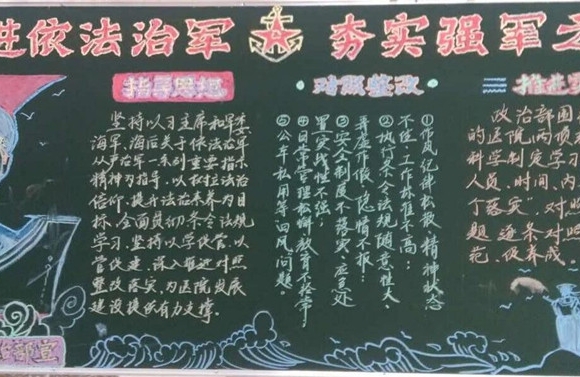 进依法治军 夯实强军之
指导思想
坚持以习主席和军委
海军、海后关于依法治军
从严治军一系列重要指示
精神为指导，以树立法治
信仰、提升法治素养为目
标，全面贯彻条令法规
学习，坚持以学促管、以
管促建，深入推进对照
整改落实，为医院发展
建设提供有力支撑。
对照整改
①作风纪律松散、精神状态
不佳、工作标准不高；
②执行条令法规随意性大、
弄虚作假、隐情不报；
③安全制度不落实、应急处
置实战性不强；
④日常管理松懈、教育不经常；
⑤公车私用等四风问题。
推进
政治部围
的医院两项
科学制定学习
人员、时间、内
个落实”，对照
题逐条对照
范、促养成。
治部宣